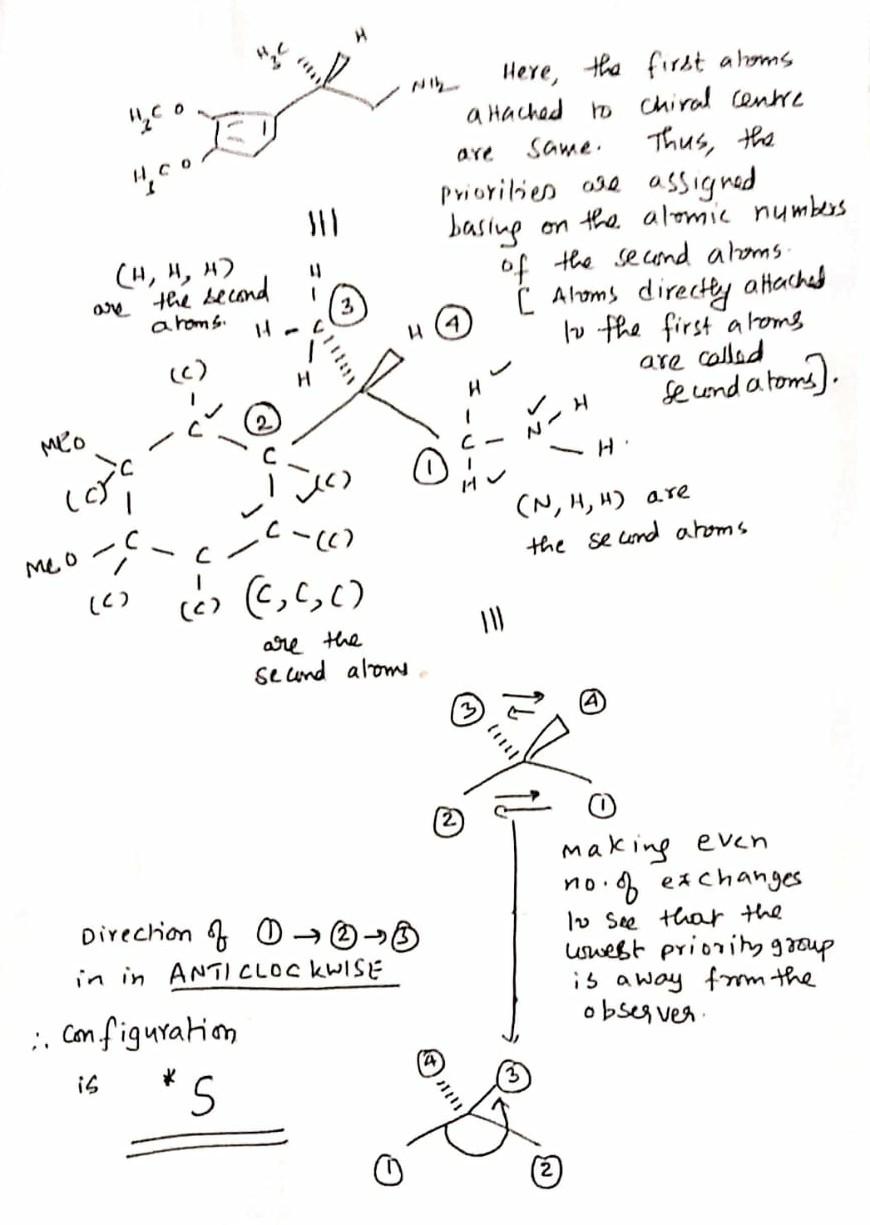 H₃C H
NH₂
H₃C O
H₃C O
Here, the first atoms
attached to chiral centre
are same. Thus, the
priorities are assigned
basing on the atomic numbers
of the second atoms.
[ Atoms directly attached
to the first atoms
are called
second atoms].
(H, H, H)
are the second
atoms.
H
H - C ③
H
H ④
(C)
C ②
MeO
C C
(C) (C)
C - (C)
MeO C C
(C) (C)
(C, C, C)
are the
second atoms.
H
① C - N H
H H
(N, H, H) are
the second atoms
③ ④
② ①
making even
no. of exchanges
to see that the
lowest priority group
is away from the
observer.
Direction of ① → ② → ③
in in ANTICLOCKWISE
∴ Configuration
is * S
④ ③
① ②